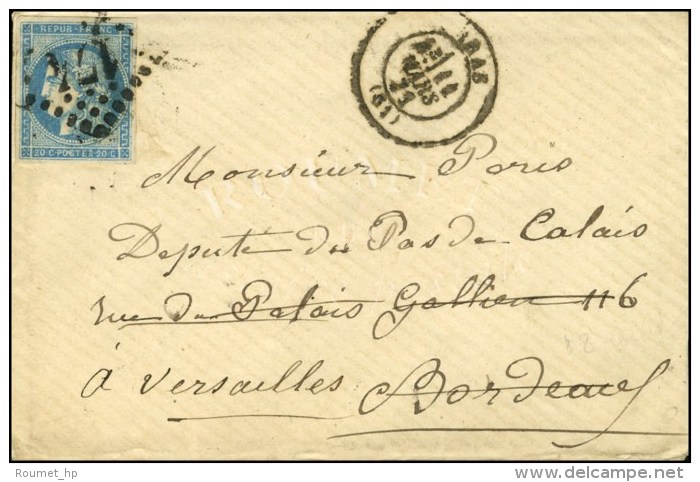 REPUB · FRANC
20 C · POSTES · 20 C
ARRAS
MARS
71
(61)
Monsieur Paris
Deputé du Pas de Calais
rue du Palais Gallien 116
à Versailles Bordeaux
Roumet_hp
delcampe.net